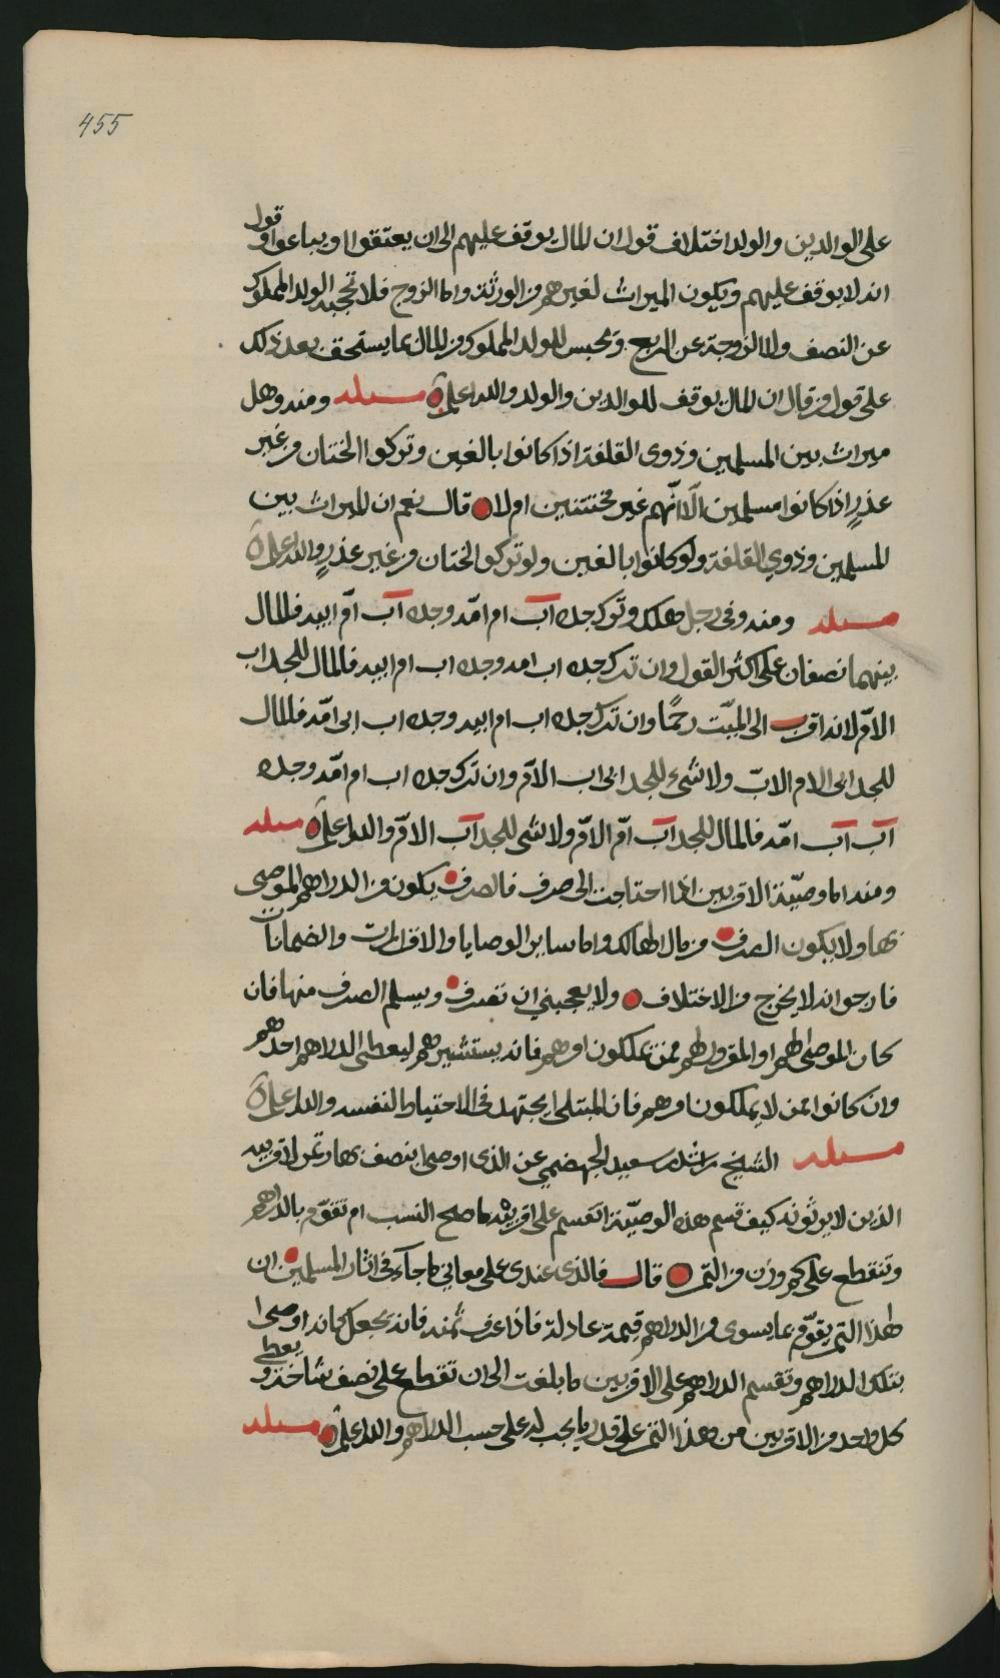 455
على الوالدين والولد اختلاف قول ان المال يوقف عليهم الى ان يعتقوا او يباعوا وقول
انه لا يوقف عليهم ويكون الميراث لغيرهم من الورثة واما الزوج فلا تحجبه الولد المملوك
عن النصف ولا الزوجة عن الربع ويحبس للولد المملوك من المال ما يستحق بعد ذلك
على قول من قال ان المال يوقف للوالدين والولد والله اعلم مسئلة ومنه وهل
ميراث بين المسلمين وذوى القلفة اذا كانوا بالغين وتركوا الختان من غير
عذرٍ اذا كانوا مسلمين الّا انّهم غير مختتنين ام لا قال نعم ان الميراث بين
المسلمين وذوي القلفة ولو كانوا بالغين ولو تركوا الختان من غير عذرٍ والله اعلم
مسئلة ومنه وفى رجل هلك وترك جده اب ام امّه وجده اب امّ ابيه فالمال
بينهما نصفان على اكثر القول وان ترك جده اب امه وجده اب ام ابيه فالمال للجد اب
الامّ لانه اقرب الى الميّت رحمًا وان ترك جده اب ام ابيه وجده اب ابى امّه فالمال
للجد ابى الام الابّ ولا شىء للجد ابى اب الامّ وان ترك جده اب ام امّه وجده
اب اب امّه فالمال للجد اب امّ الامّ ولا شى للجد اب اب الامّ والله اعلم مسئلة
ومنه اما وصيّة الاقربين اذا احتاجت الى صرف فالصرف يكون من الدراهم الموصى
بها ولا يكون الصرف من مال الهالك واما ساير الوصايا والاقرارات والضمانات
فارجوا انه لا يخرج من الاختلاف ولا يعجبني ان تصرف ويسلم الصرف منها فان
كان الموصى لهم او المقر لهم ممن يملكون امرهم فانه يستشيرهم ليعطى الدراهم احدهم
وان كانوا ممن لا يملكون امرهم فان المبتلى يجتهد فى الاحتياط لنفسه والله اعلم
مسئلة الشيخ راشد بن سعيد الجهضمي عن الذى اوصى بنصف بهار تمر لاقربيه
الذين لا يرثونه كيف قسم هذه الوصيّة اتقسم على اقربيه ما صلح النسب ام تقوّم بالدراهم
وتنقطع على كم وزن من التمر قال فالذى عندى على معاني ما جآء فى اثار المسلمين ان
هذا التمر يقوّم بما يسوى من الدراهم قيمة عادلة فاذا عرف ثمنه فانه يجعل كانه اوصى
بتلك الدراهم وتقسم الدراهم على الاقربين ما بلغت الى ان تقطع على نصف شاخة ويعطى
كل واحد من الاقربين من هذا التمر على قدر ما يجب له على حسب الدراهم والله اعلم مسئلة